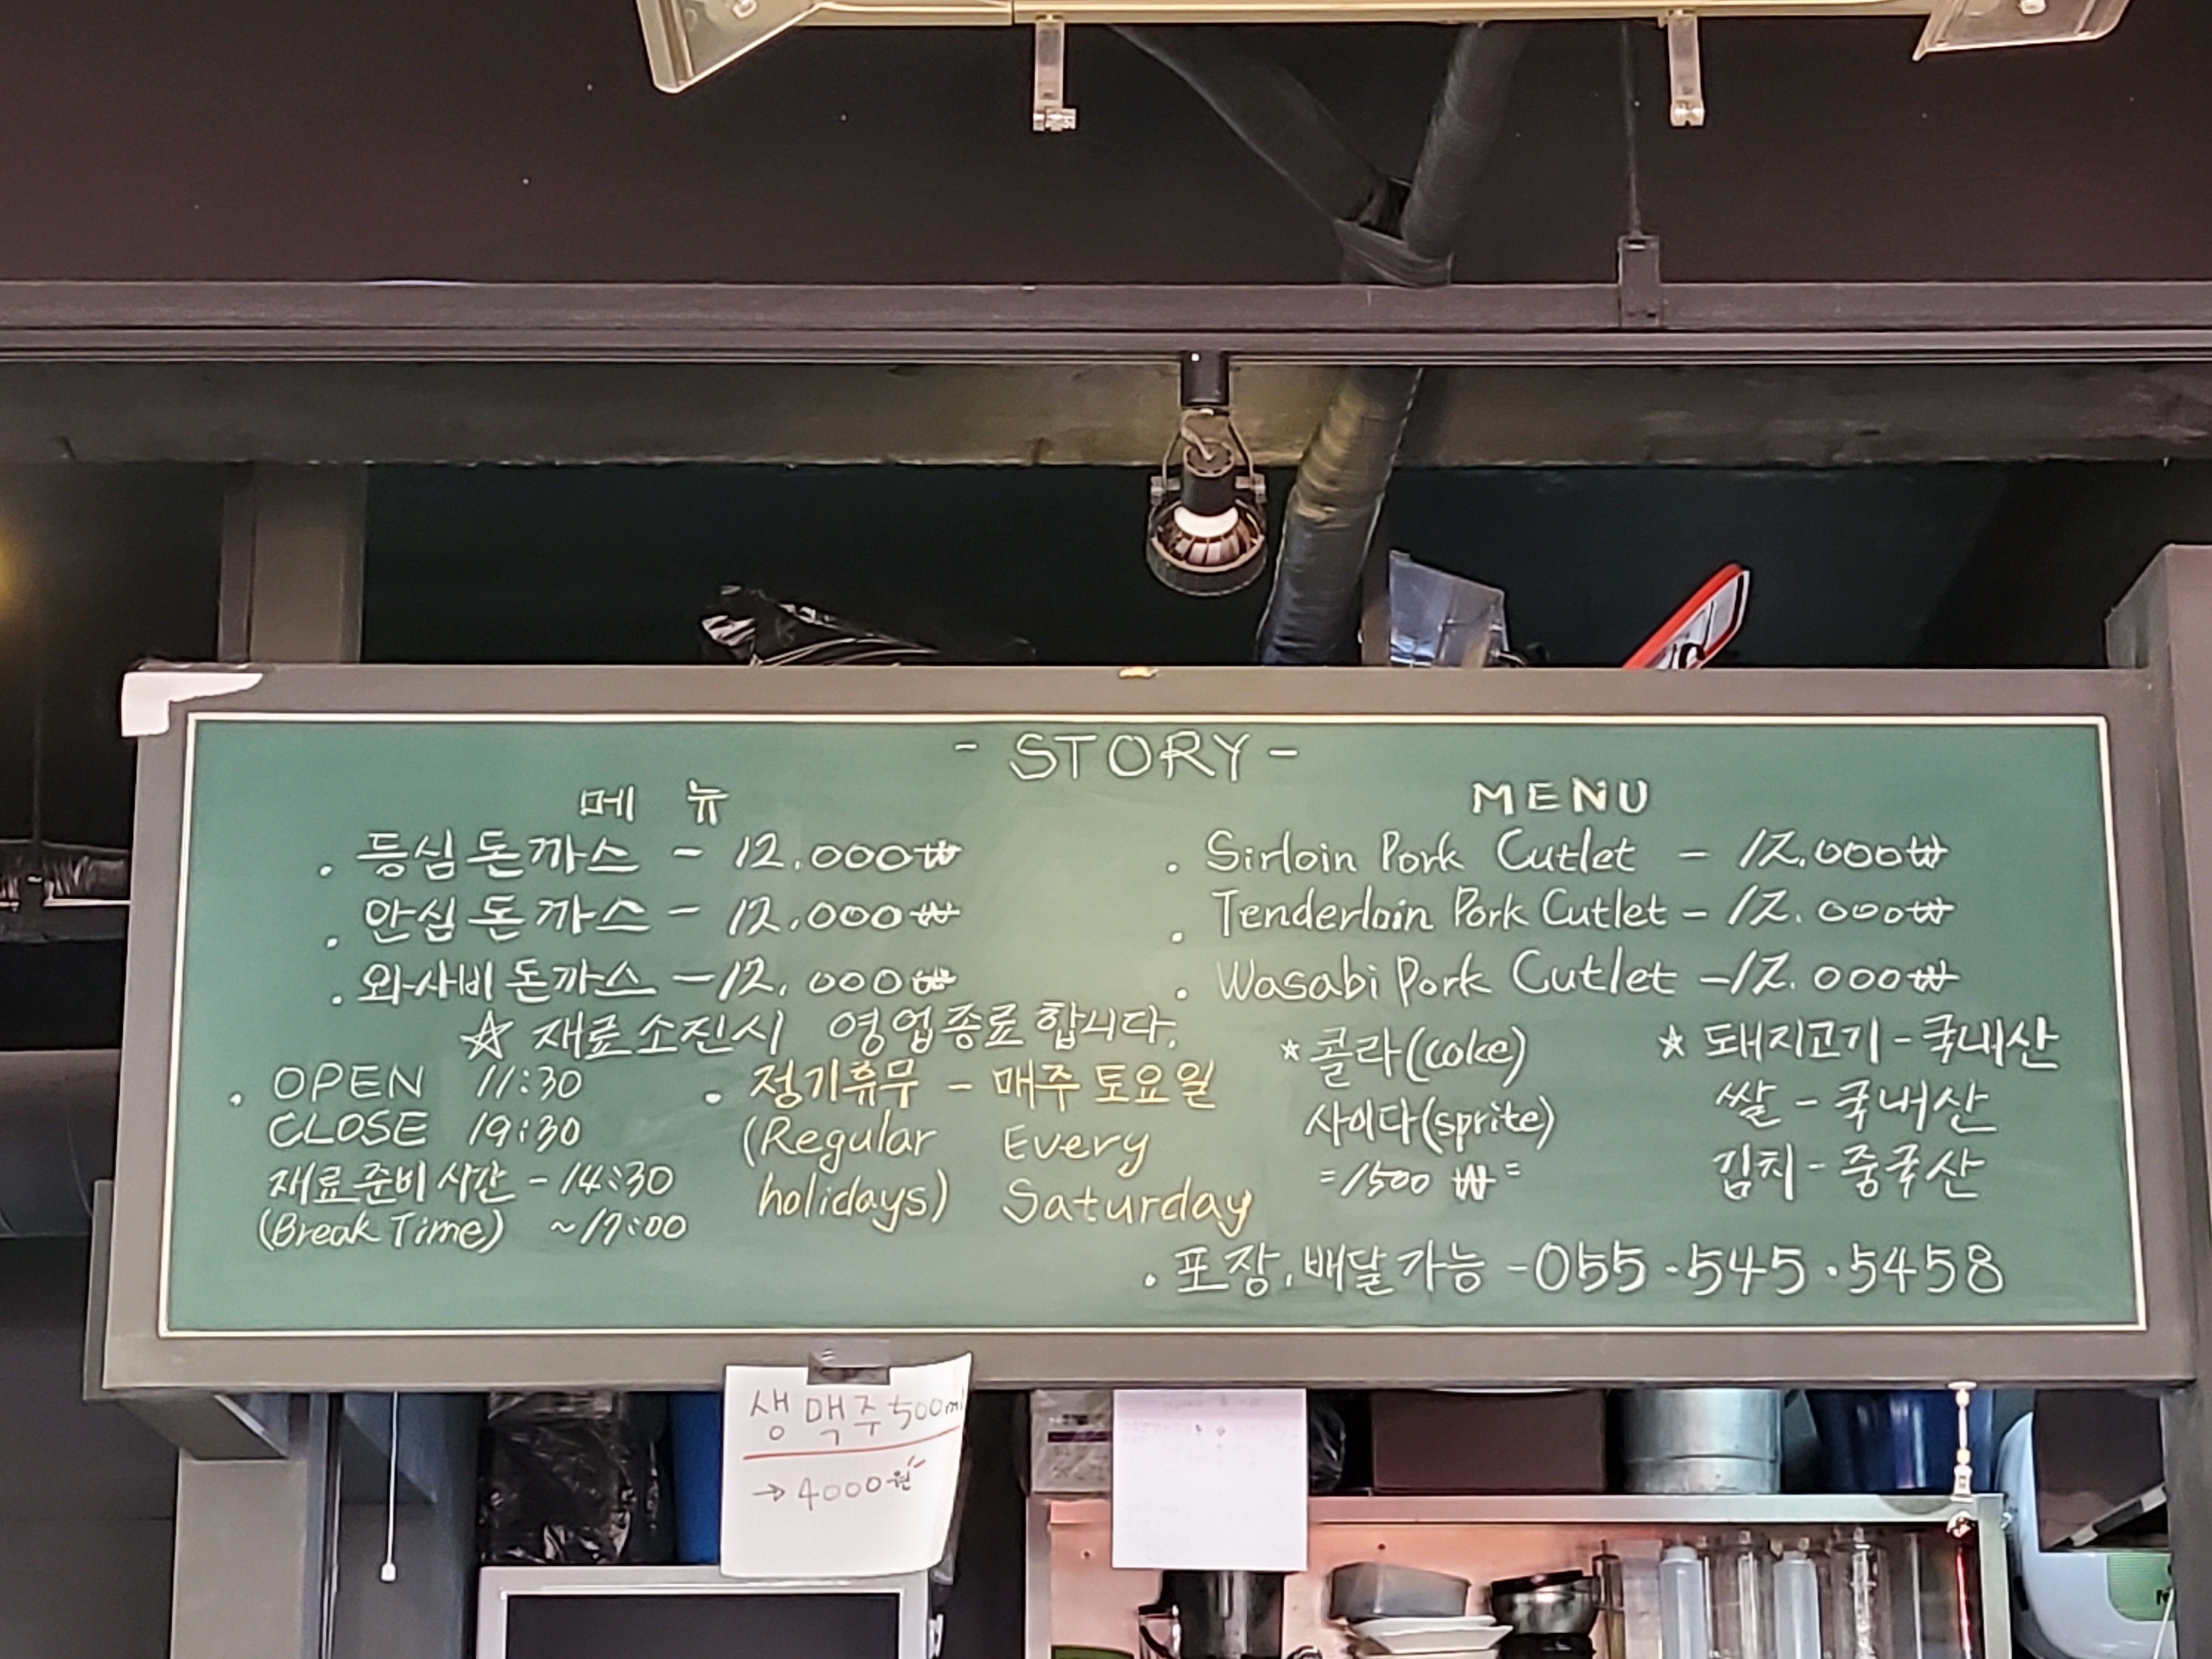 - STORY -
메 뉴
. 등심돈까스 - 12,000₩
. 안심돈까스 - 12,000₩
. 와사비돈까스 - 12,000₩
☆ 재료소진시 영업종료합니다.
. OPEN 11:30
CLOSE 19:30
재료준비시간 - 14:30
(Break Time) ~17:00
. 정기휴무 - 매주 토요일
(Regular Every
holidays) Saturday
MENU
. Sirloin Pork Cutlet - 12.000₩
. Tenderloin Pork Cutlet - 12.000₩
. Wasabi Pork Cutlet - 12.000₩
☆ 콜라(coke)
사이다(sprite)
=1500 ₩=
☆ 돼지고기 - 국내산
쌀 - 국내산
김치 - 중국산
. 포장,배달가능 - 055.545.5458
생맥주 500ml
→ 4000원